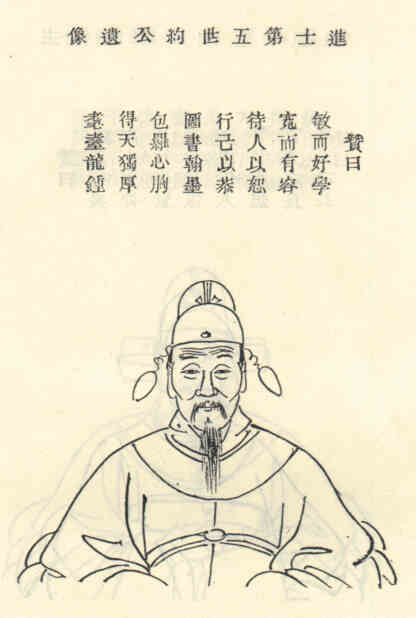 進士第五世約公遺像
贊曰
敏而好學
寬而有容
待人以恕
行己以恭
圖書翰墨
包羅心胸
得天獨厚
耄耋龍鍾